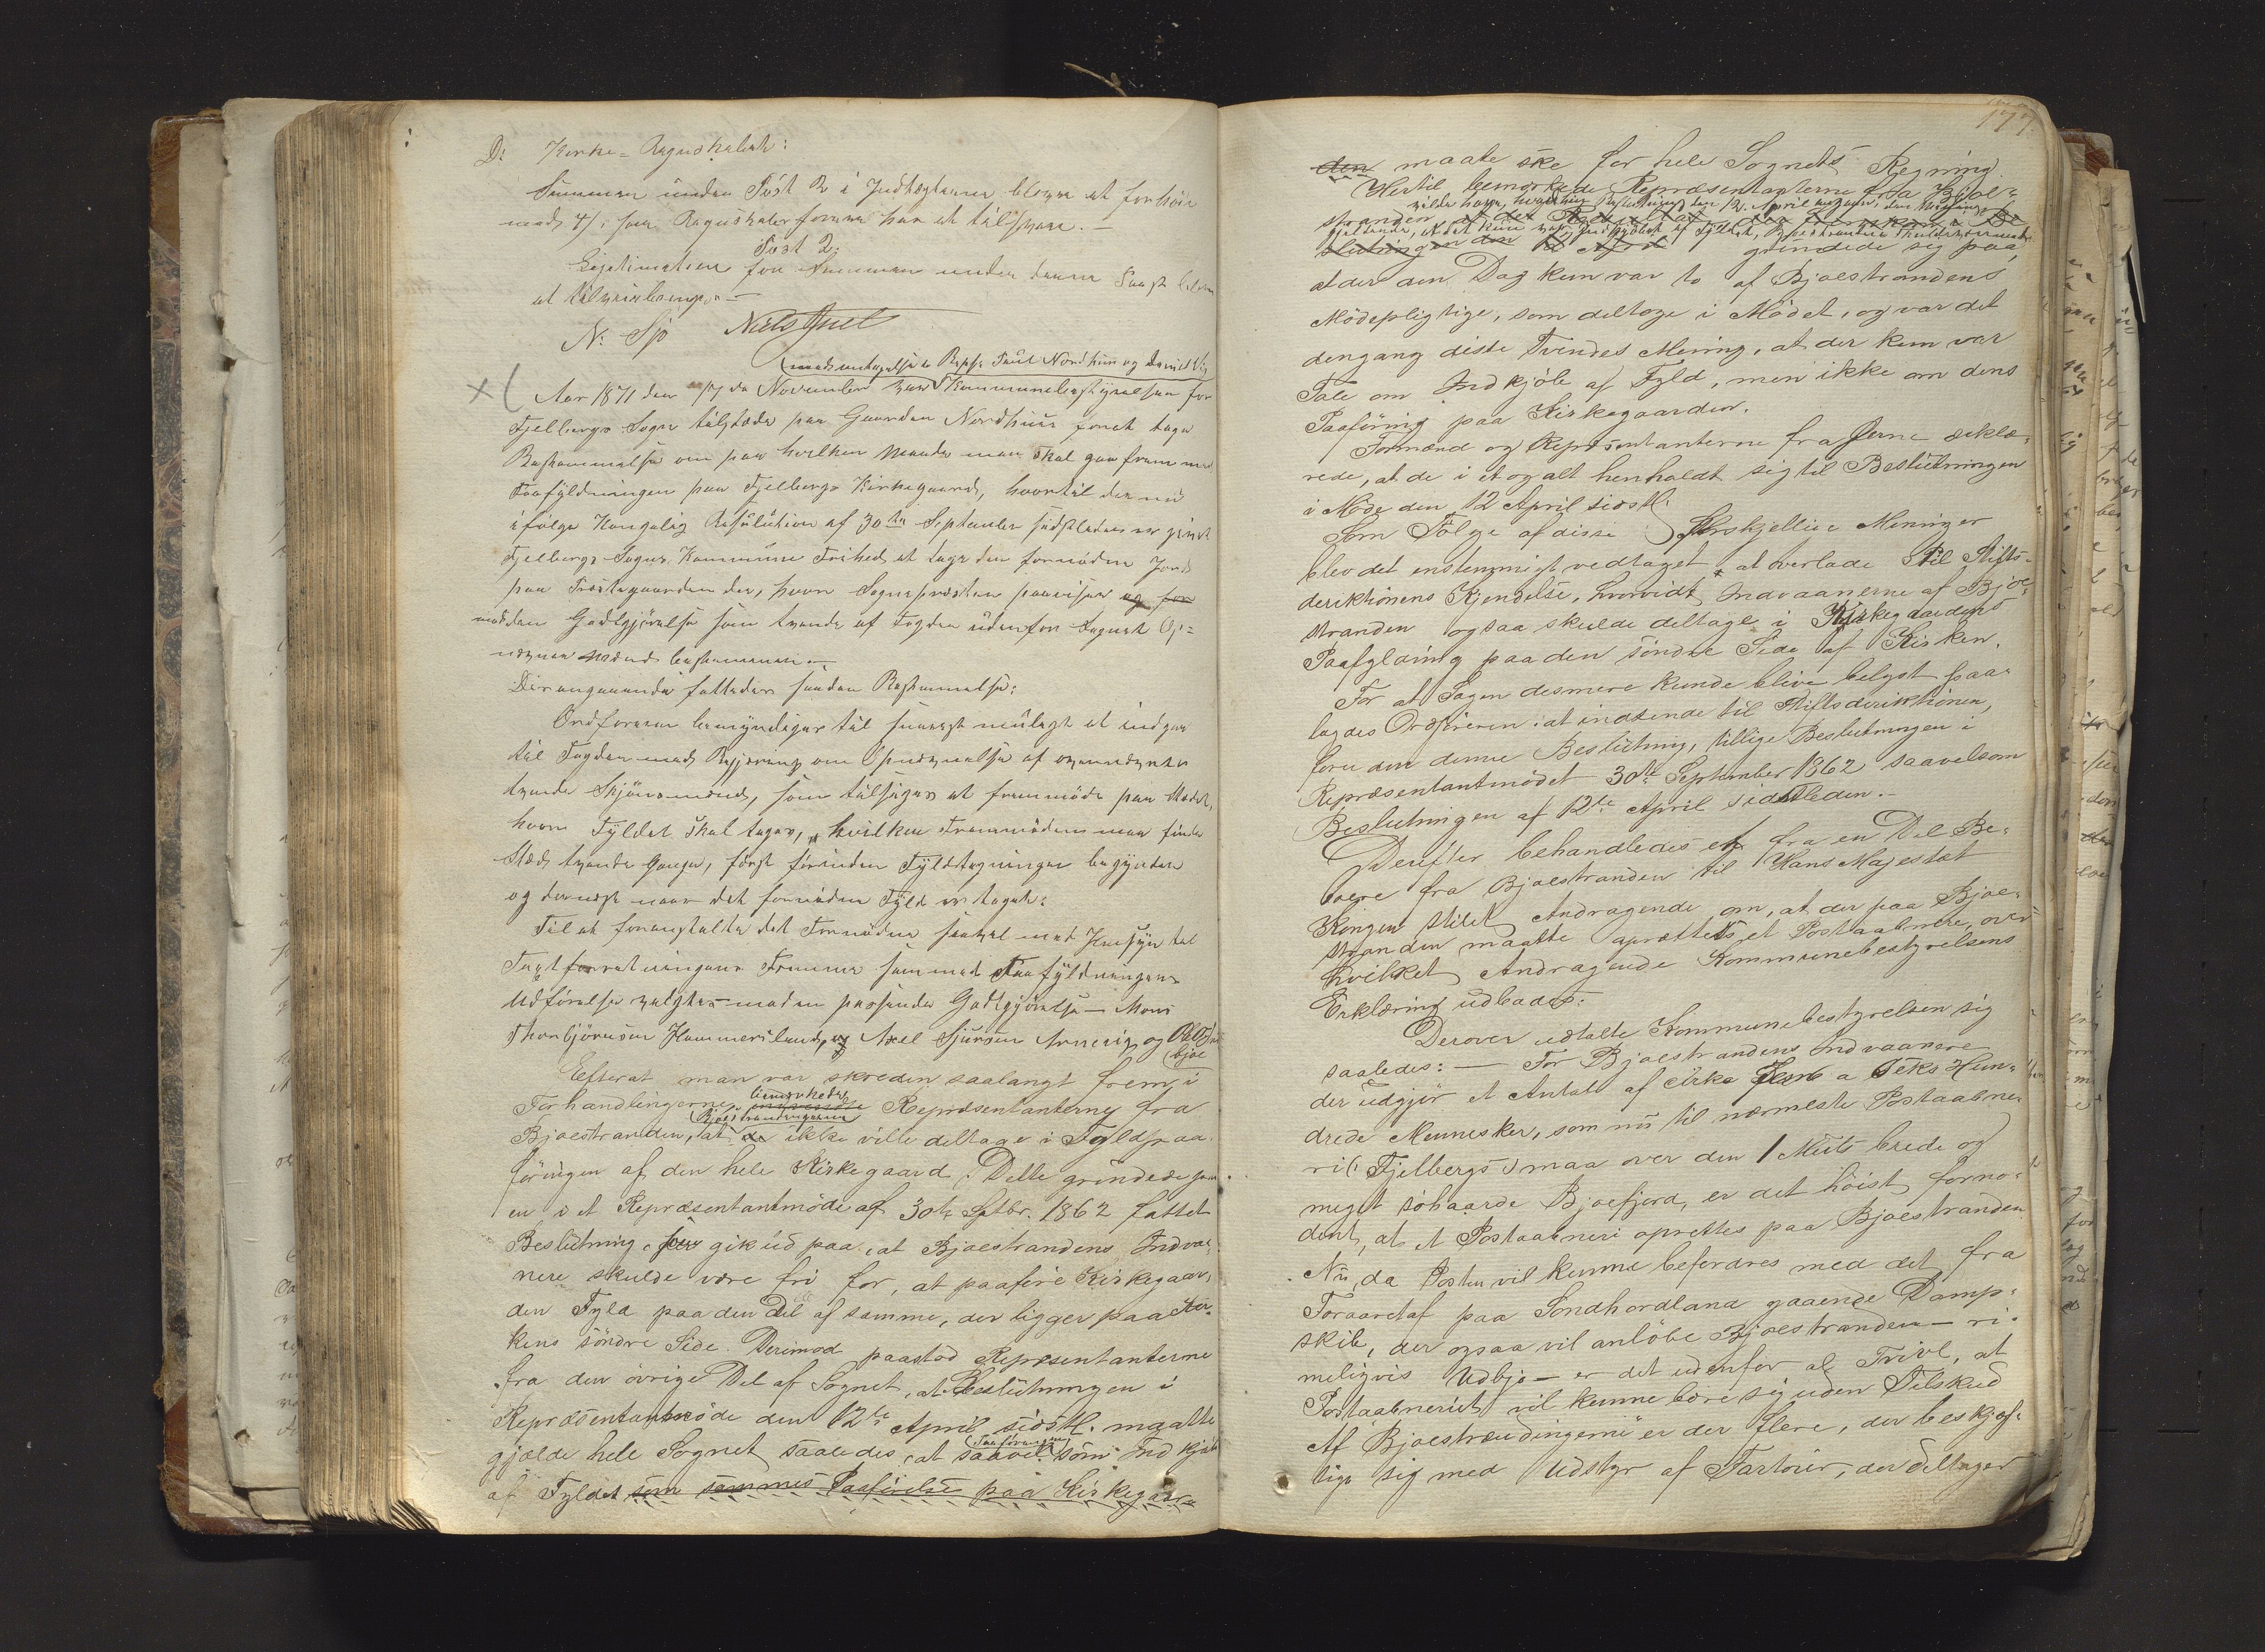 D: Kirke-Regnskabet:
Summen under Post 2 i Indtægterne bliver at forhöie
med 4 /: som Regnskabsföreren har at tilsvare. –
Post 2:
Legitimation for Summen under denne Post bliver
at tilveiebringe. –
N: Sjo Niels Juel
med undtagelse Repr. Poul Nordhuus og David
Aar 1871 den 17 de November var Kommunebestyrelsen for
Fjelbergs Sogn tilstede paa Gaarden Nordhuus foret tage
Bestemmelse om paa hvilken Maade man skal gaa frem med
Paafyldningen paa Fjelbergs Kirkegaard, hvortil der nu
ifölge Kongelig Resolution af 30te September sidstleden er givet
Fjelbergs Sogns Kommune Frihed at tage den fornödne Jord
paa Prestegaarden der, hvor Sognepresten paaviser og for
mod den Godtgjörelse som tvende af Fogden udenfor Sognet Op=
nævnte Mænd bestemmer. –
Desangaaende fattedes saadan Bestemmelse:
Ordföreren bemyndiges til snarest muligt at indgaa
til Fogden med Begjæring om Opnævnelse af ovennævnte
tvende Skjönsmænd, som tilsiges at fremmöde paa Stedet,
hvor Fyldet skal tages, hvilken Fremmöden maa finde
Sted tvende Gange, först förinden Fyldtagningen begynder
og dernæst naar det fornödne Fyld er taget:
Til at foranstalte det Fornödne saavel med Hensyn til
Taxtforretningens Fremme som med Paafyldningens
Udförelse valgtes – mod en passende Godtgjörelse – Mons
Thorbjörnsen Hammersland, og Axel Sjursen Arnevig og Ole
bjoe
Efterat man var skreden saalangt frem i
Forhandlingerne, bemærkede Repræsentanterne fra
Bjoestranden, at Bjoestrandingerne de ikke ville deltage i Fyldpaa
föringen af den hele Kirkegaard. Dette gründede paa
en i et Repræsentantmöde af 30te Sptbr. 1862 fattet
Beslutning, som gik ud paa, at Bjoestrandens Indvaa=
nere skulde være fri for, at paaföre Kirkegaar=
den Fyld paa den Del af samme, der ligger paa Kir=
kens söndre Side. Derimod paastod Repræsentanterne
fra den övrige Del af Sognet, at Beslutningen i
Repræsentantmöde den 12te April sidstl. maatte
gjælde hele Sognet saaledes, at saavel Paaföringen som Indkjöb
af Fyldet som sammes Paaförelse paa Kirkegaar=
177.
den maate ske for hele Sognets Regning.
Hertil bemærkede Repræsentanterne fra Bjoe=
vilde have, hvad Beslutning den 12. April angaar, den Mening
stranden, at der
gjeldende, at det kun var Indkjöbet af Fyldet, Bjoestranden skulde
slutningen den 12 April grundede sig paa,
at der den Dag kun var to af Bjoestrandens
Mödepligtige, som deltoge i Mödet, og var det
dengang disse Tvendes Mening, at der kun var
Tale om Indkjöb af Fyld, men ikke om dens
Paaföring paa Kirkegaarden.
Formænd og Repræsentanterne fra Öerne erklæ=
rede, at de i et og alt henholdt sig til Beslutningen
i Möde den 12 April sidstl.
Som Fölge af disse forskjellige Meninger
blev det enstemmigt vedtaget at overlade til Stifts=
deriktionens Kjendelse, hvorvidt Indvaanerne af Bjoe=
stranden ogsaa skulde deltage i Kirkegaardens
Paafylding paa den söndre Side af Kirken.
For at Sagen desmere kunde blive belyst paa=
lagdes Ordföreren: at indsende til Stiftsderiktionen,
foruden denne Beslutning, tillige Beslutningen i
Repræsentantmödet 30te September 1862 saavelsom
Beslutningen af 12te April sidstleden. –
Derefter behandledes et fra en Del Be=
boere fra Bjoestranden til Hans Majestæt
Kongen stilet Andragende om, at der paa Bjoe=
stranden maatte oprættets et Postaabnere, over
hvilket Andragende Kommunebestyrelsens
Erklæring udbades:
Derover udtalte Kommunebestyrelsen sig
saaledes: – For Bjoestrandens Indvaanere
der udgjör et Antal af cirka fem a Seks Hun=
drede Mennesker, som nu til nærmeste Postaabne=
ri (Fjelbergs) maa over den 1 Miils brede og
meget söhaarde Bjoefjord, er det höist fornö=
dent, at et Postaabneri oprettes paa Bjoestranden
Nu, da Posten vil kunne befordres med det fra
Foraaret af paa Söndhordland gaaende Damp=
skib, der ogsaa vil anlöbe Bjoestranden – ri=
meligvis Udbjo – er det udenfor al Tvivl, at
Postaabneriet vil kunne bære sig uden Tilskud
Af Bjoestrandingerne er der flere, der beskjæf=
tige sig med Udstyr af Fartöier, der deltager